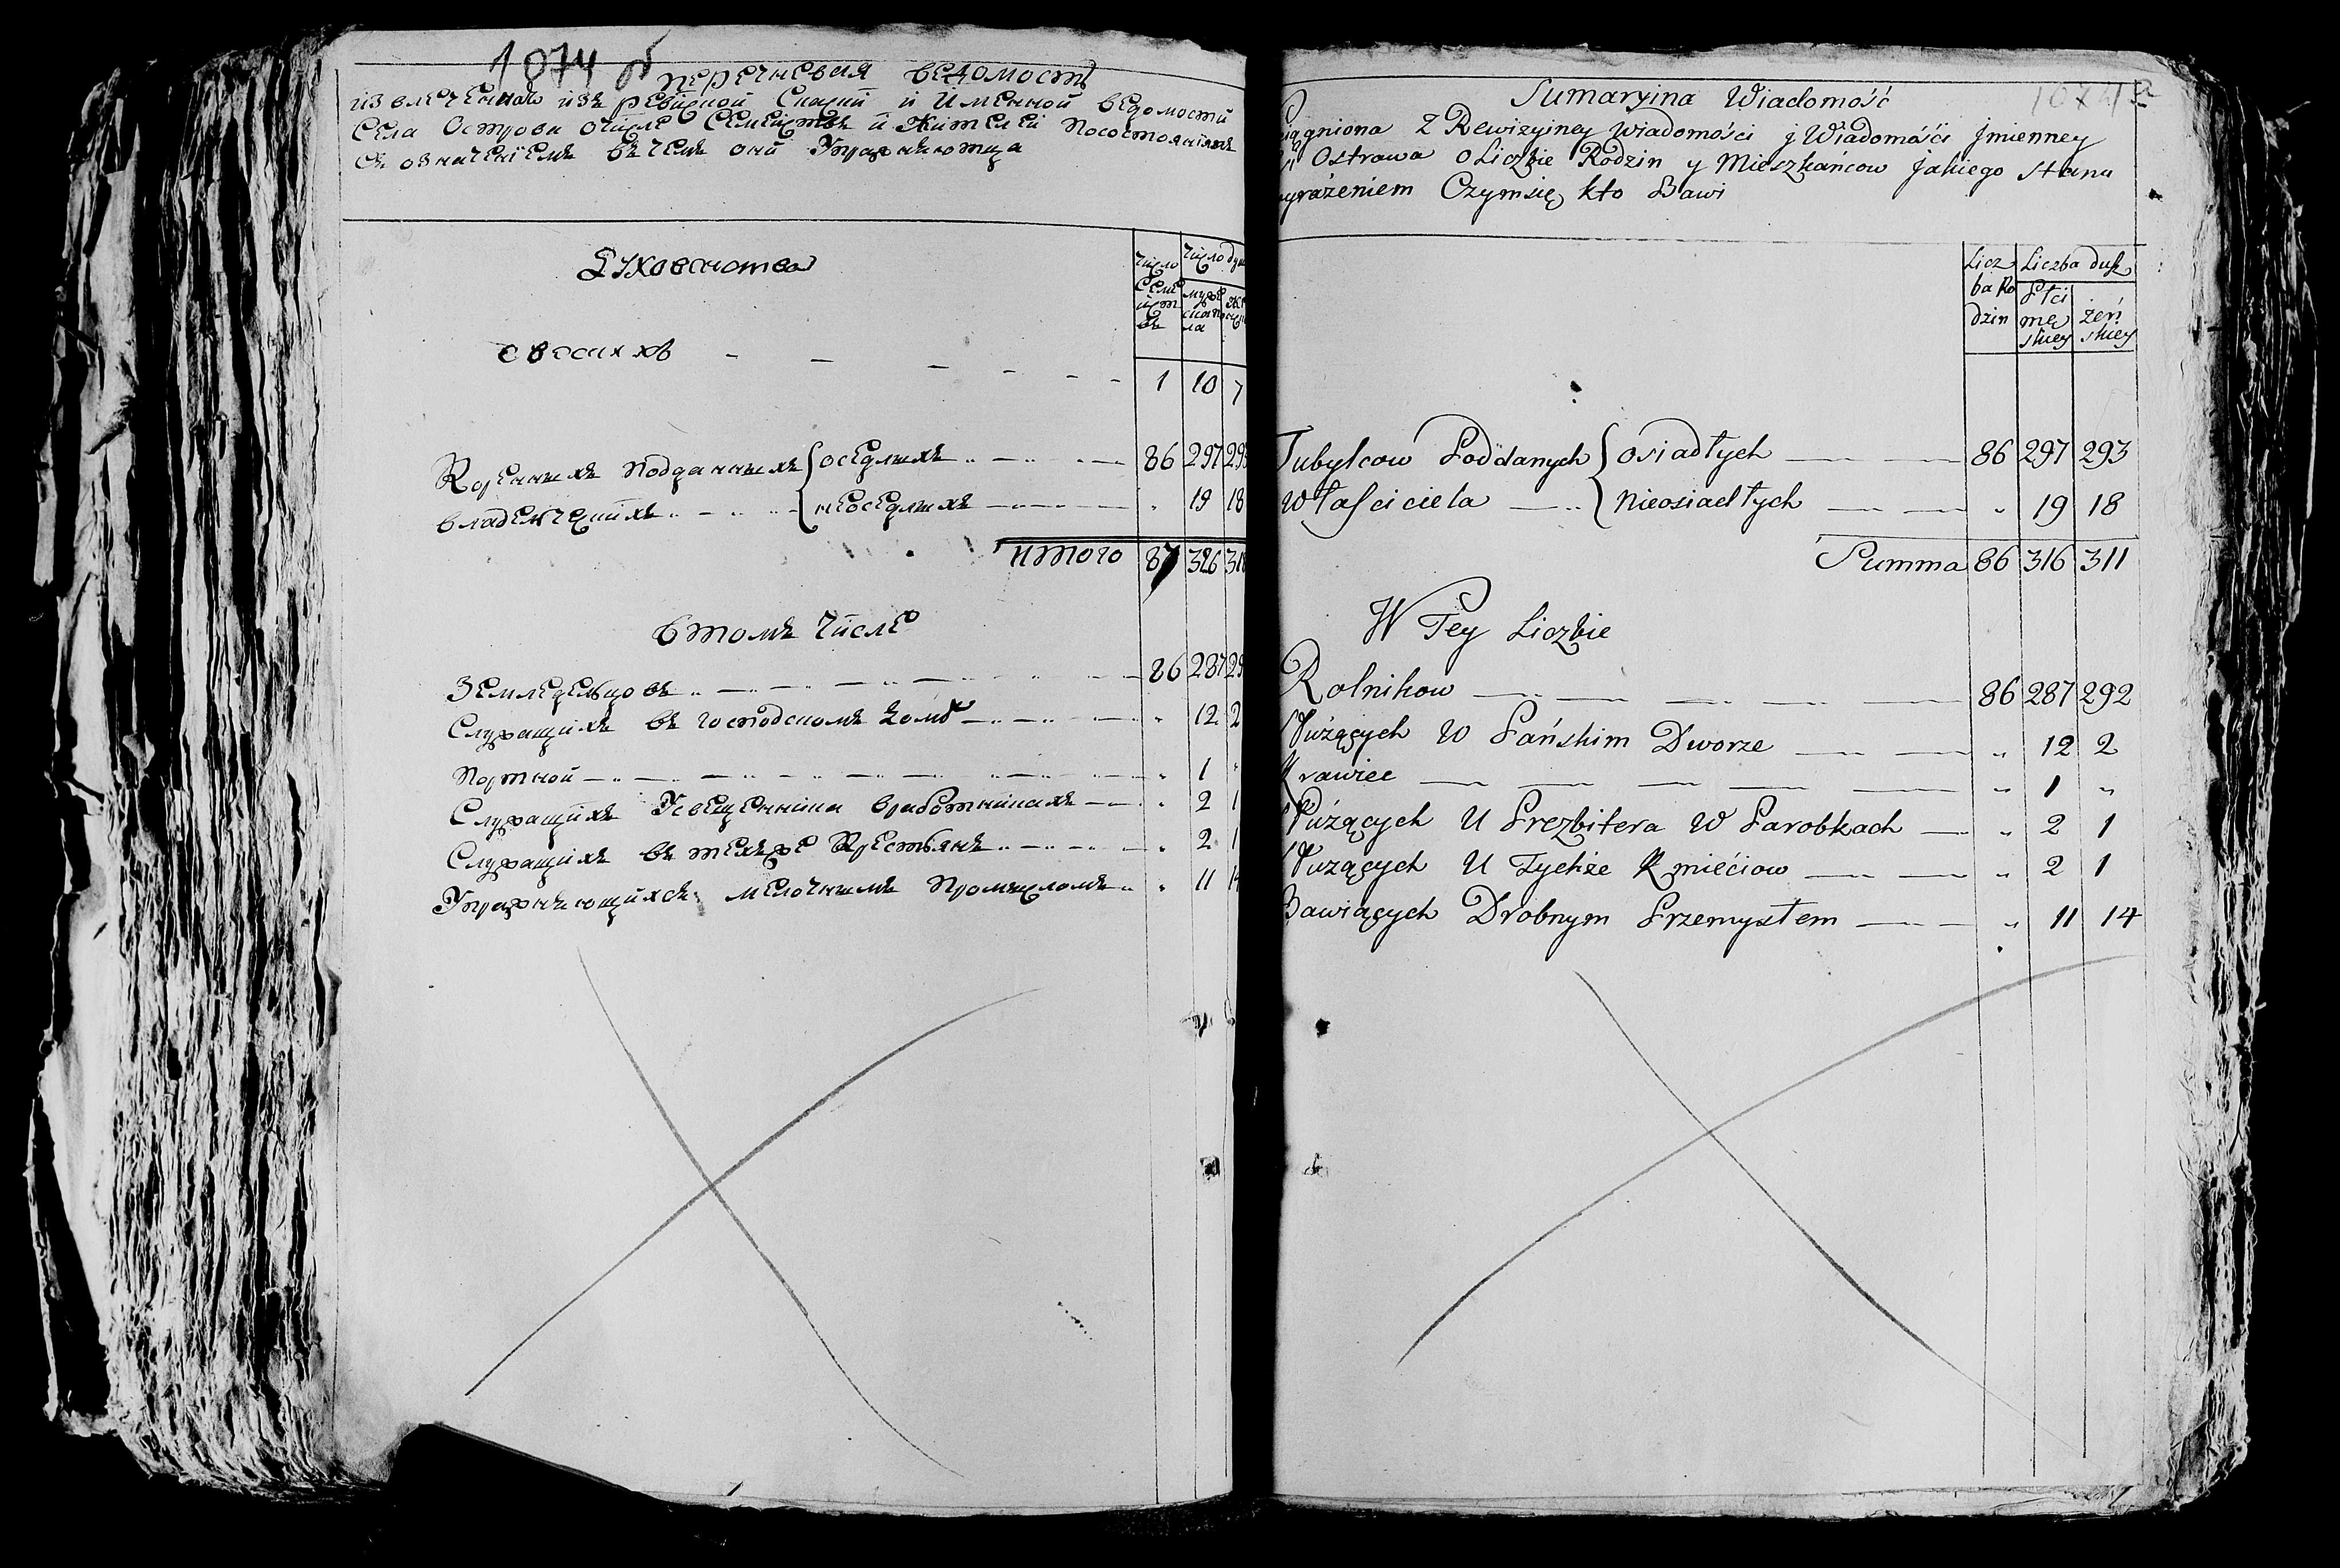 1074 об
Перечневая ведомость
извлеченная изъ ревизкой Скаски и Именной ведомости
Села Острова очисле Семействъ и Жителей посостояниямъ
Съ означениемъ въ чемъ они Упражняютца
Духовенства
Число Семействъ
Число душ
мужеска пола
обоихъ - - - - - - 1 10 7
Коренныхъ подданныхъ { оседлыхъ 86 297 293
владелческихъ { неоседлыхъ " 19 18
Итого 87 326 318
Втомъ Числе
Земледельцовъ 86 287 29
Служащихъ въ господскомъ Доме " 12 2
Портной " 1 "
Служащихъ Усвещенника вработникахъ " 2 1
Служащихъ въ техъже Крестьянъ " 2 1
Упражняющихсе мелочнымъ Промысломъ " 11 14
1074
Sumaryina Wiadomość
ciągniona z Rewizyiney Wiadomości j Wiadomości Jmienney
Ostrowa o Liczbie Rodzin y Mieszkańcow Jakiego Stanu
wyrażeniem Czymsię kto Bawi
Licz
ba Ro
dzin
Liczba dusz
Płci
mę
skiey
żeń
skiey
Tubylcow Poddanych { osiadłych 86 297 293
Właściciela { Nieosiadłych " 19 18
Summa 86 316 311
W Tey Liczbie
Rolnikow 86 287 292
Służących W Pańskim Dworze " 12 2
Krawiec " 1 "
Służących U Prezbitera W Parobkach " 2 1
Służących U Tychże Kmiećiow " 2 1
Bawiących Drobnym Przemysłem " 11 14